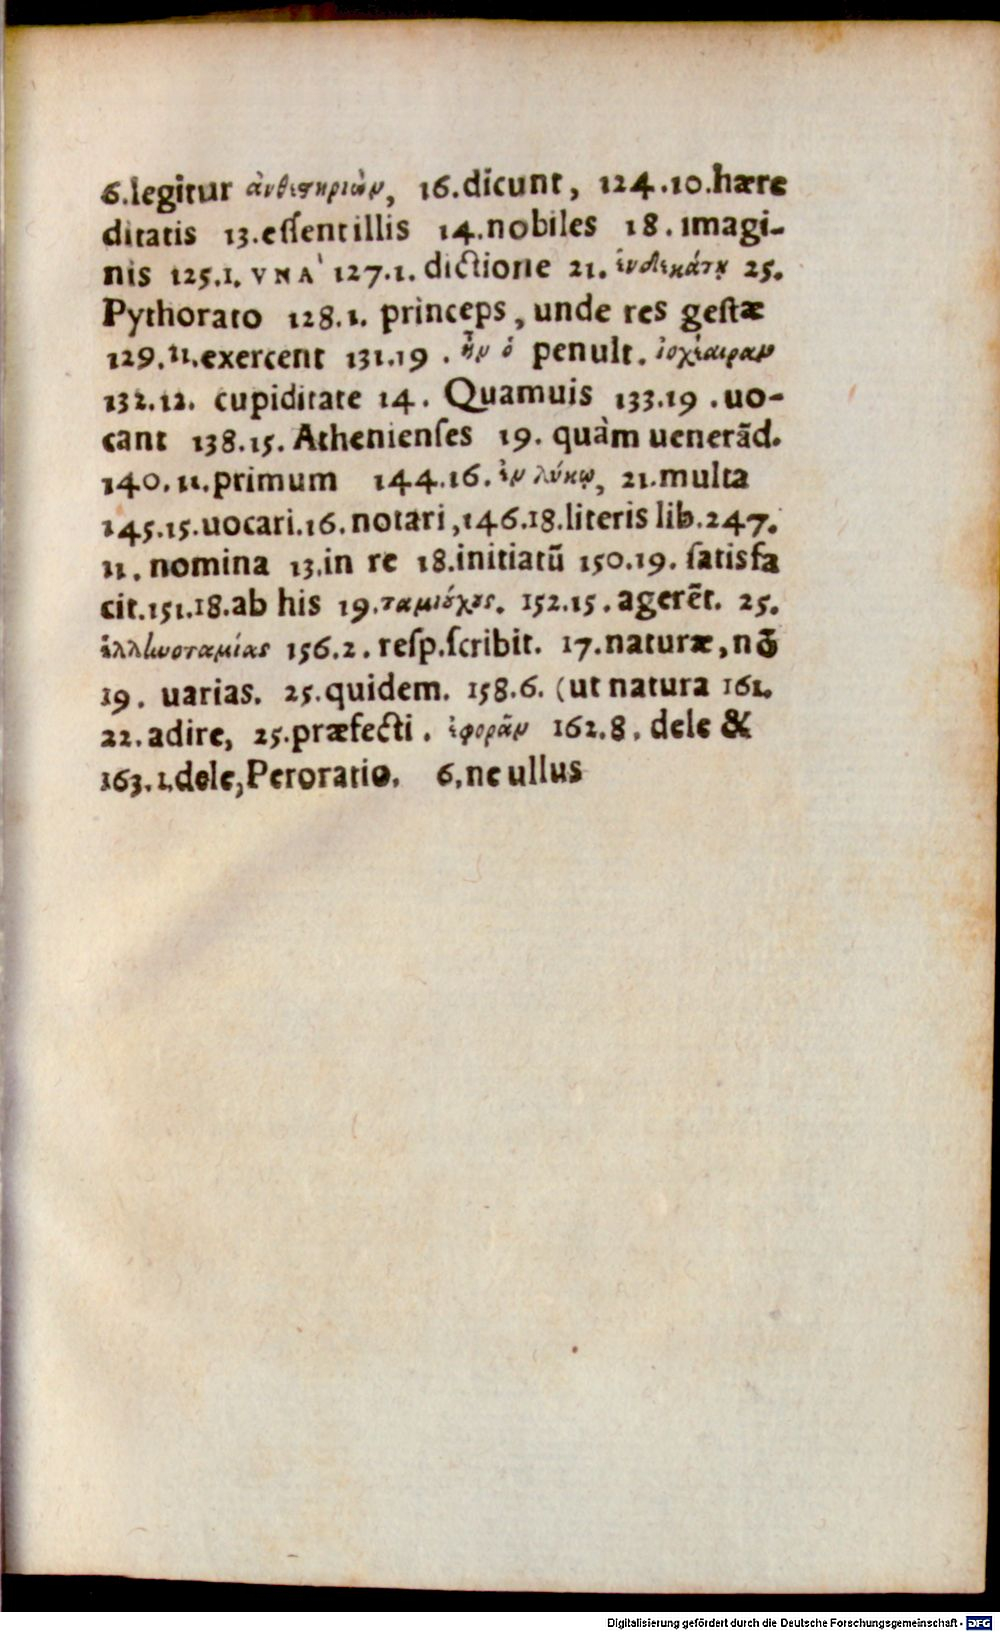 6.legitur ἀνθεστηριὼν, 16.dicunt, 124.10.hære
ditatis 13.eſſent illis 14.nobiles 18.imagi-
nis 125.1. VNA' 127.1. dictione 21. ἑνδεκάτῃ 25.
Pythorato 128.1. princeps, unde res geſtæ
129.11.exercent 131.19. ἦν ὁ penult. ἰοχέαιραν
132.12. cupiditate 14. Quamuis 133.19.uo-
cant 138.15. Athenienſes 19. quàm uenerãd.
140.11.primum 144.16. ἐν λύκῳ, 21.multa
145.15.uocari.16.notari,146.18.literis lib.247.
11.nomina 13.in re 18.initiatũ 150.19. ſatisfa
cit.151.18.ab his 19.ταμιούχους. 152.15.agerẽt. 25.
ἑλληνοταμίας 156.2.reſp.ſcribit. 17.naturæ,nõ
19. uarias. 25.quidem. 158.6. (ut natura 161.
22.adire, 25.præfecti. ἐφορᾶν 162.8. dele &
163.1.dele,Peroratio. 6.ne ullus
Digitalisierung gefördert durch die Deutsche Forschungsgemeinschaft - DFG